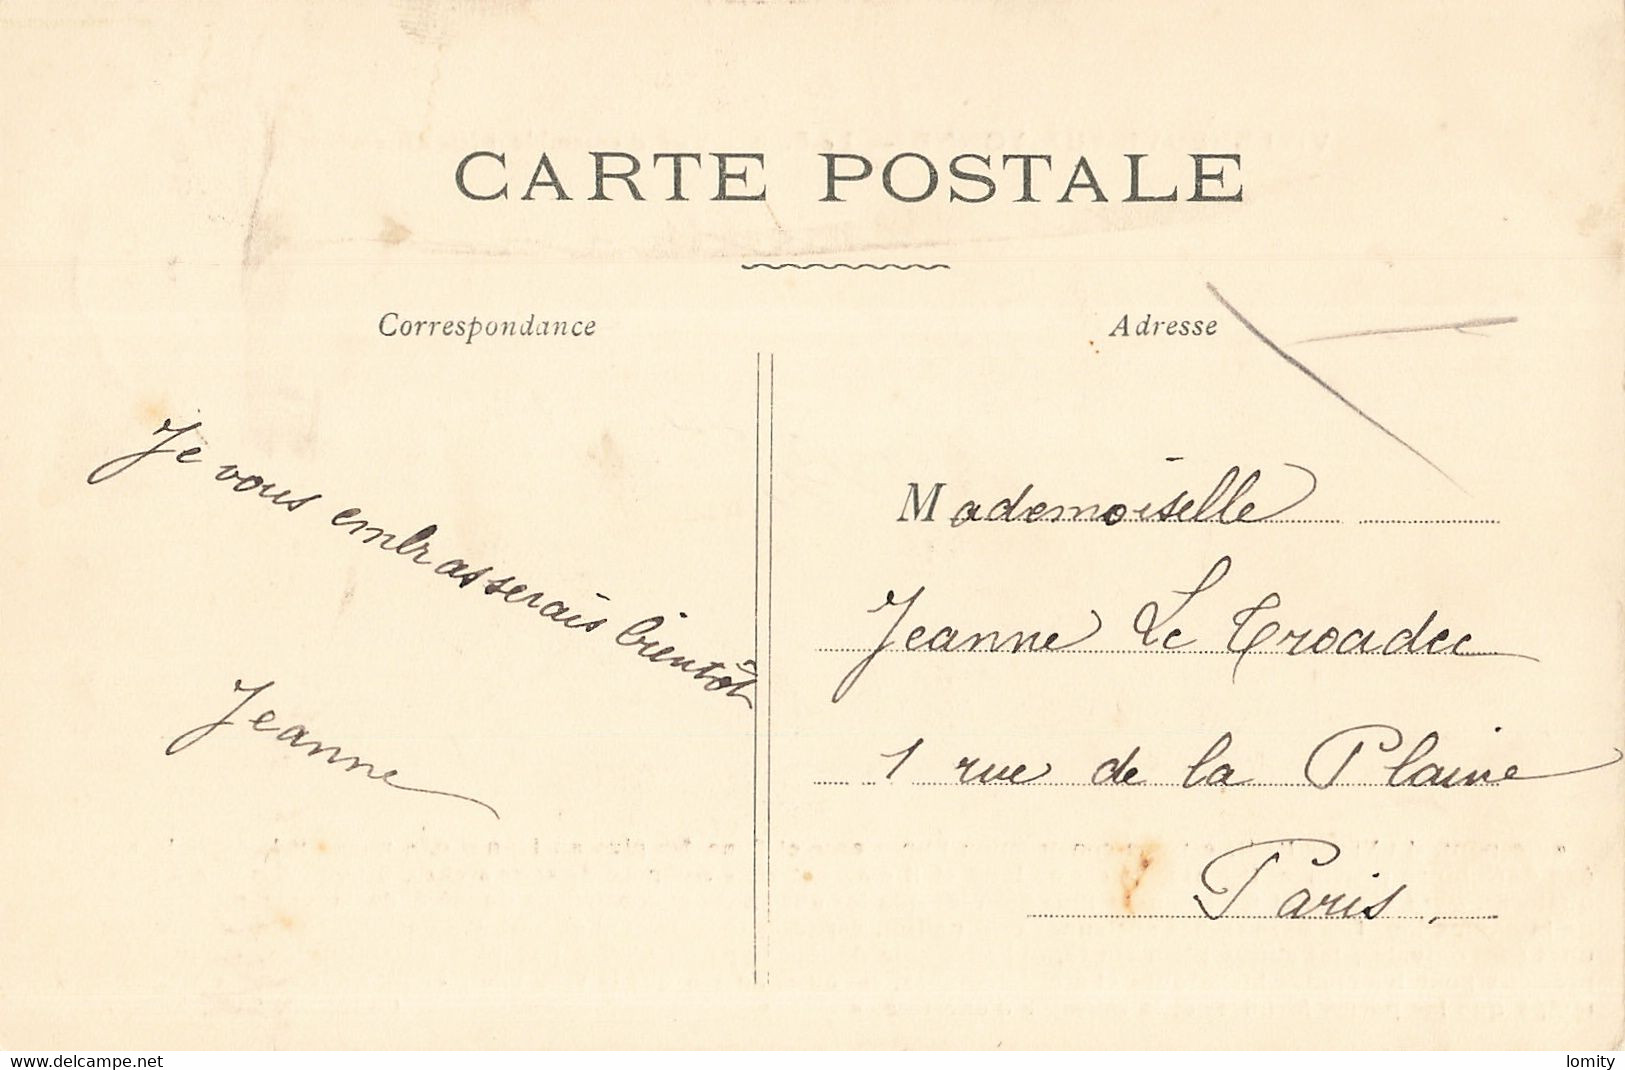 CARTE POSTALE
Correspondance
Adresse
Je vous embrasserais bientôt
Jeanne
Mademoiselle
Jeanne Le Troadec
1 rue de la Plaine
Paris.
www.delcampe.net
lomity